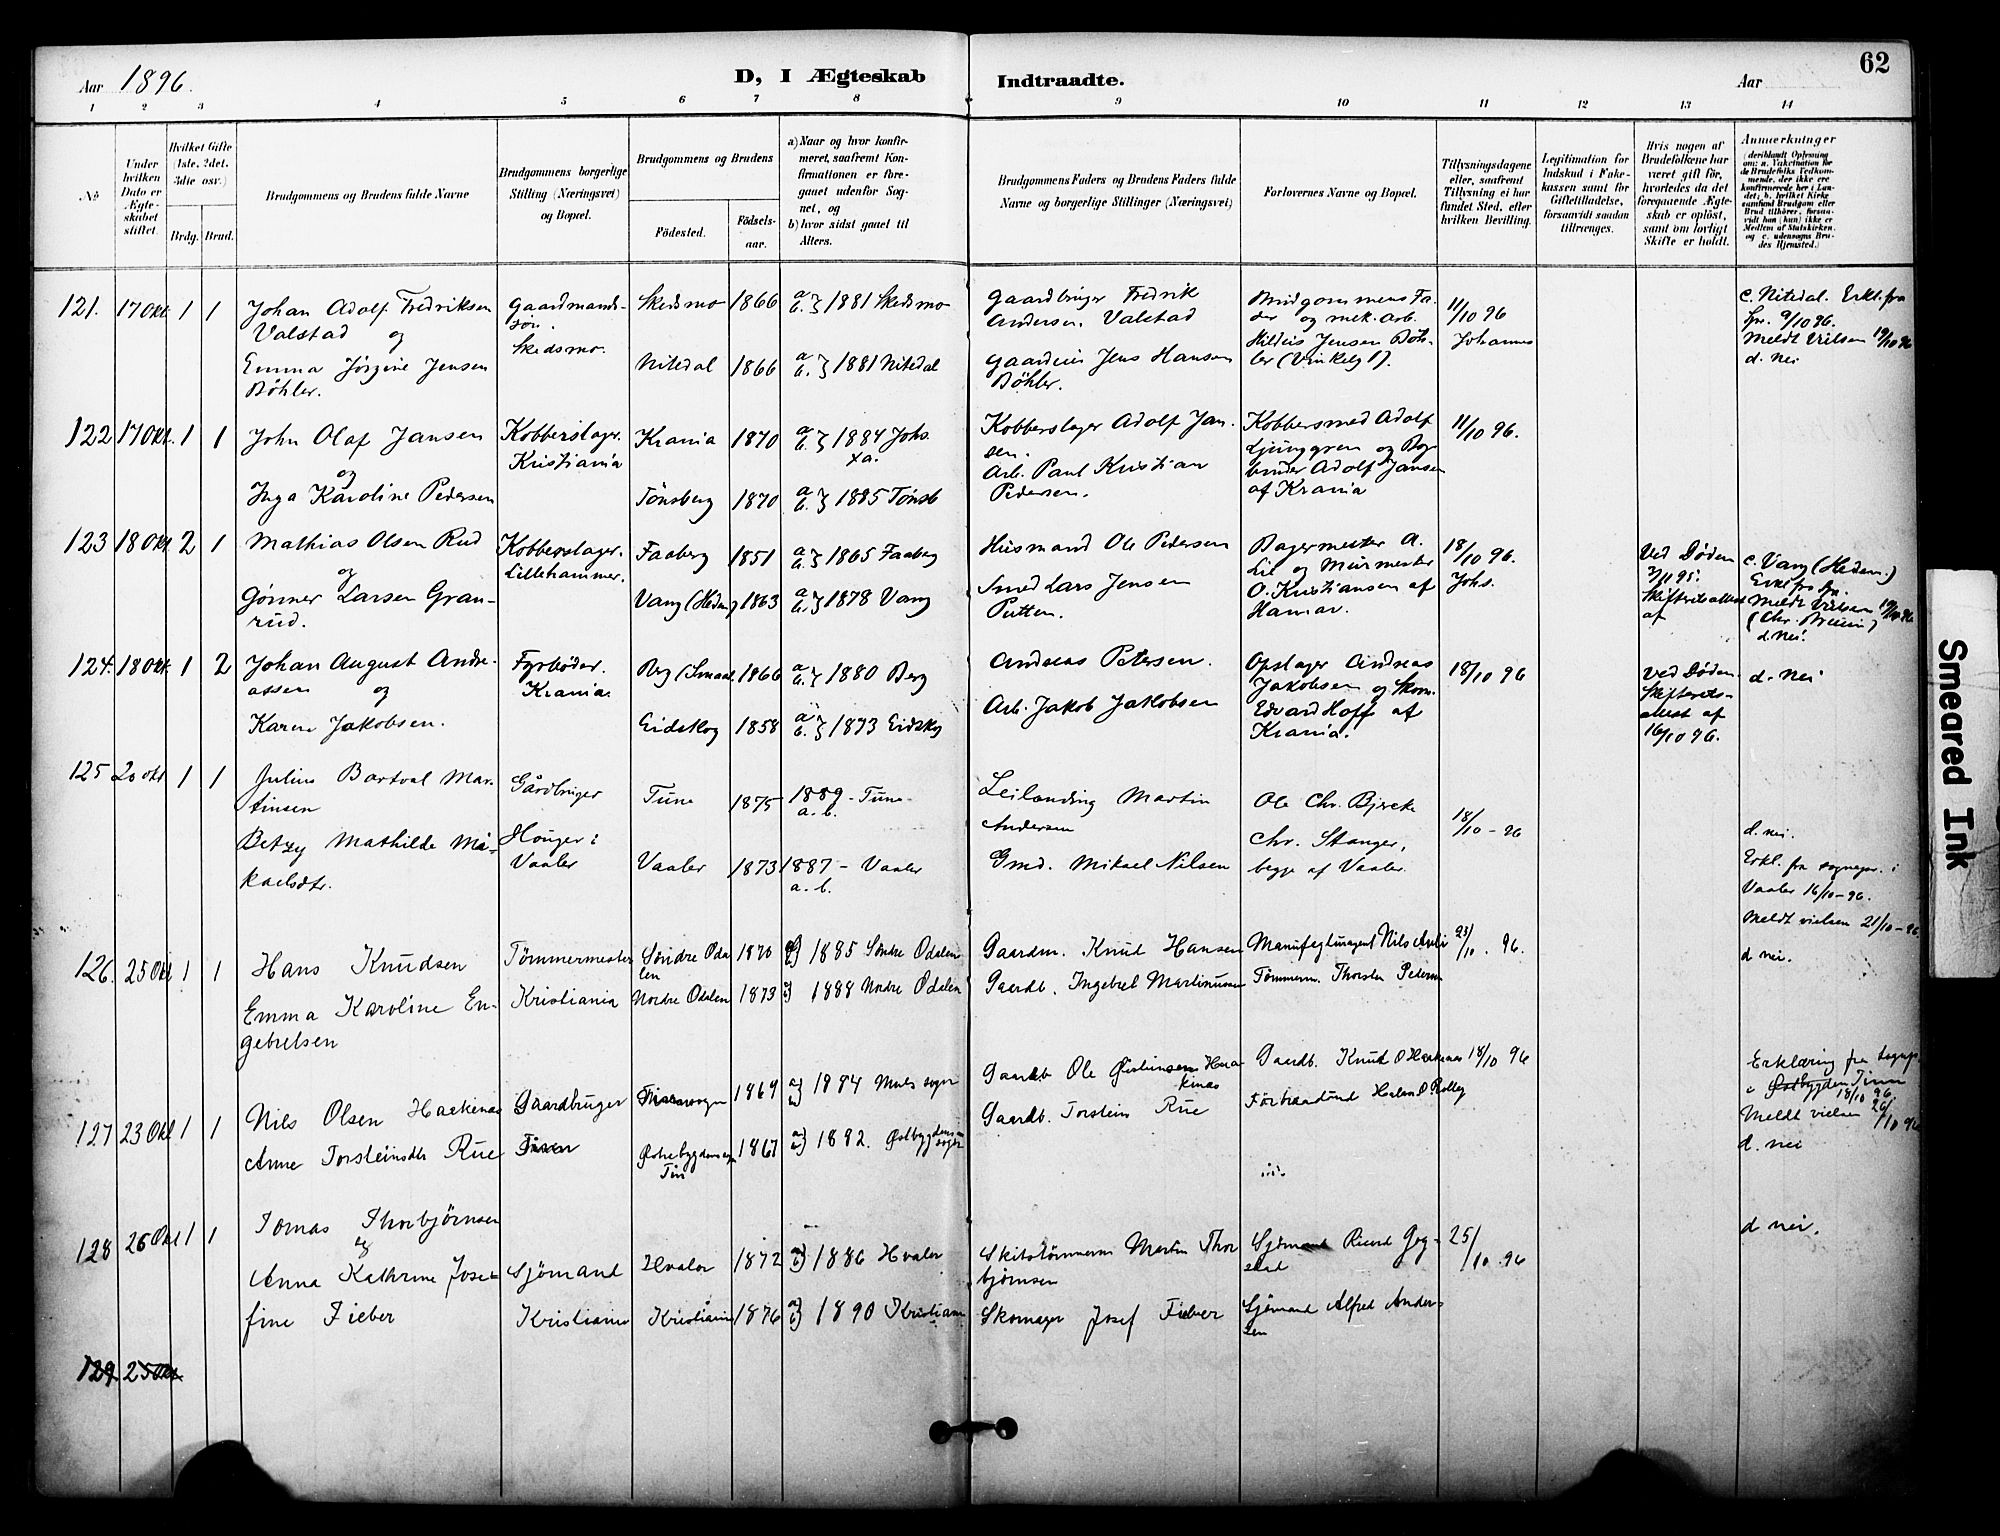 62
Aar 1896.
D, I Ægteskab Indtraadte.
Aar
1 2 3 4 5 6 7 8 9 10 11 12 13 14
No.
Under hvilken Dato er Ægteskabet stiftet.
Hvilket Gifte (1ste, 2det, 3die osv.)
Brdg. Brud.
Brudgommens og Brudens fulde Navne
Brudgommens borgerlige Stilling (Næringsvei) og Bopæl.
Brudgommens og Brudens
Födested.
Födselsaar.
a) Naar og hvor konfirmeret, saafremt Konfirmationen er foregaaet udenfor Sognet, og
b) hvor sidst gaaet til Alters.
Brudgommens Faders og Brudens Faders fulde Navne og borgerlige Stillinger (Næringsvei)
Forlovernes Navne og Bopæl.
Tillysningsdagene eller, saafremt Tillysning ei har fundet Sted, efter hvilken Bevilling.
Legitimation for Indskud i Enkekassen samt for Giftetilladelse, forsaavidt saadan tiltrænges.
Hvis nogen af Brudefolkene har været gift för, hvorledes da det foregaaende Ægteskab er oplöst, samt om lovligt Skifte er holdt.
Anmærkninger
(deriblandt Oplysning om: a. Vakcination for de Brudefolks Vedkommende, der ikke ere konfirmerede her i Landet; b. hvilket Kirkesamfund Brudgom eller Brud tilhörer, forsaavidt han (hun) ikke er Medlem af Statskirken, og c. udensogns Brudes Hjemsted.)
121. 17 Okt. 1 1
Johan Adolf Fredriksen
Valstad og
Emma Jørgine Jensen
Bøhler.
Gaardmands-
søn.
Skedsmo.
Skedsmo 1866 a. b. } 1881 Skedsmo
Nitedal 1866 a. b. } 1881 Nitedal
Gaardbruger Fredrik
Andersen Valstad
Gaardeier Jens Hansen
Bøhler.
Brudgommens Fa-
der og mek. Arb.
Jensen Bøh-
ler
11/10 96
Johannes
c. Nitedal. Erkl. fra
9/10 96.
Meldt Vielsen 19/10 96
d. Nei
122 17 Okt. 1 1
John Olaf Jansen
og
Inga Karoline Pedersen
Kobberslager.
Kristiania
Krania 1870 a. b. } 1884 Johs.
Xa.
Tønsberg 1870 a. b. } 1885 Tønsb
Kobberslager Adolf Jan-
sen.
Arb. Paul Kristian
Pedersen.
Kobbersmed Adolf
Ljunggren og Bog-
binder Adolf Jansen
af Krania
11/10 96.
123 18 Okt. 2 1
Mathias Olsen Rud
og
Gønner Larsen Gran-
rud.
Kobberslager.
Lillehammer.
Faaberg 1851 a. b. } 1865 Faaberg
Vang (Hedem) 1863 a. b. } 1878 Vang
Husmand Ole Pedersen
Smed Lars Jensen
Putten.
Bagermester A.
Lie og Murmester
O. Kristiansen af
Hamar.
18/10 96.
Johs.
Ved Døden
95.
Skifteretsattest
af
c. Vang (Hedem.)
Erkl. fra
Meldt Vielsen 19/10 96
d. Nei.
124. 18 Okt. 1 2
Johan August Andre-
assen og
Karen Jakobsen.
Fyrbøder.
Krania.
Berg (Smaal. 1866 a. b. } 1880 Berg
Eidskog 1858 a. b. } 1873 Eidskg
Andreas Petersen.
Arb. Jakob Jakobsen
Opslager Andreas
Jakobsen og Skom.
Edvard Hoff af
Krania.
18/10 96
Ved Døden.
Skifterets-
attest af
16/10 96.
d. Nei
125 20 okt 1 1
Julius Bartval Mar-
tinsen
Betzy Mathilde Mi-
kaelsdtr.
Gårdbruger
Houger i
Vaaler
Tune 1875 1889 - Tune
a. b.
Vaaler 1873 1887 - Vaaler
a. b.
Leilending Martin
Andersen
Gmd. Mikael Nilsen
Ole Chr. Bjercke
Chr. Stanger,
begge af Vaaler.
18/10 - 96
d. nei.
Erkl. fra sognepr. i
Vaaler 16/10-96.
Meldt vielsen 21/10-96.
126. 25 Okt 1 1
Hans Knudsen
Emma Karoline En-
gebretsen
Tømmermester
Kristiania
Søndre Oda
len 1870 1885 Søndre Odalen
Nordre Odalen 1873 1888 Nordre Odalen
Gaardm. Knud Hansen
Gaardb. Ingebret Martinusen
Nils
Tømmerm. Thorsten Pedersen
23/10. 96.
d nei.
127 23 Okt 1 1
Nils Olsen Haakenas
Anne Torsteinsdtr Rue
Gaardbruger
1869 1884 sogn
Østrebygdens
Tin 1867 1882. Østbygdens
sogn
Gaardb Ole
Gaardb. Torstein Rue
Gaardb. Knud O Haakenas
18/10 96
Erklæring fra sognepr
i Østbygden Tinn
18/10 96
Meldt vielsen 26/10 96
d. nei
128 26 Okt 1 1
Tomas Thorbjørnsen
og
Anna Kathrine Jose-
fine Fieber
Sjømand
Kristiania
Hvaler 1872 1886 Hvaler
Kristiania 1876 1890 Kristiania
Martin Thor
bjørnsen
Skomager Josef Fieber
Sjømand
Sjømand Alfred Ander-
sen
25/10. 96
d nei.
129 25 Okt
Smeared Ink